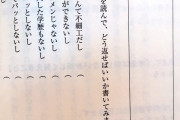 を読んで、どう返せばいいか書いてみよ
んて不細工だし（
ができないし（
メンじゃないし（
した学歴もないし（
パッとしないし（